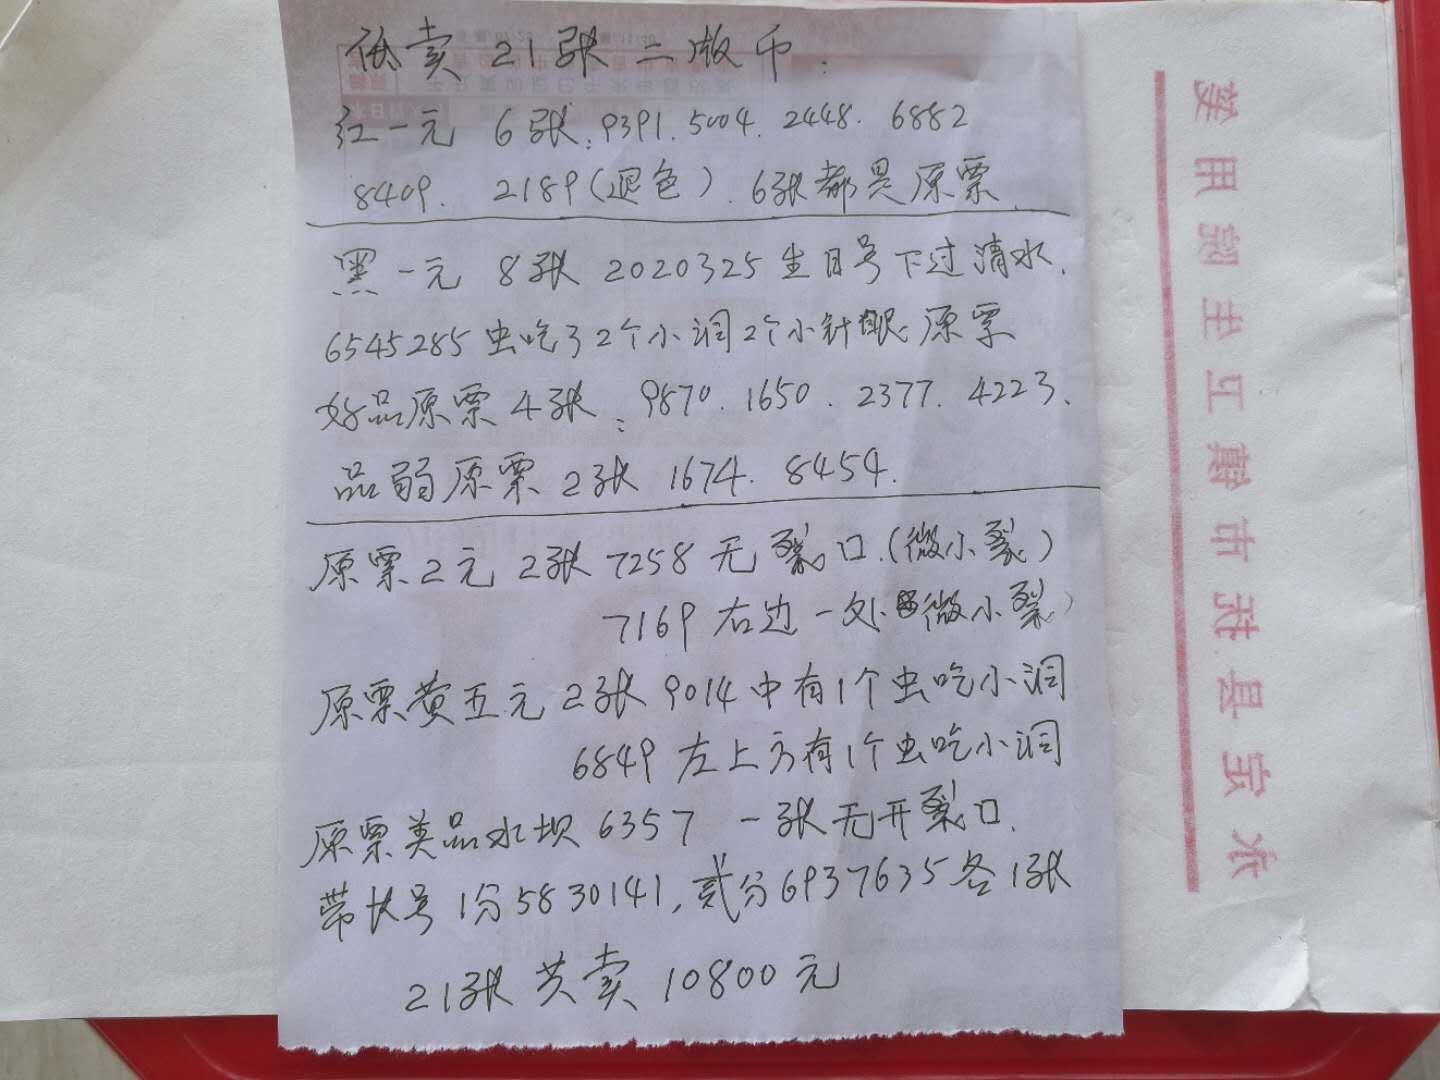 低卖21张二版币:
红一元 6张:9391.5004.2448.6882
8409. 2189(退色).6张都是原票.
黑一元 8张 2020325生日号下过清水.
6545285虫吃了2个小洞2个小针眼原票
好品原票4张:9870.1650.2377.4223.
品弱原票2张 1674.8454.
原票2元 2张 7258无裂口.(微小裂)
7169右边一处微小裂
原票黄五元 2张 9014中有1个虫吃小洞
6849左上方有1个虫吃小洞
原票美品水坝6357 一张无开裂口.
带长号1分5830141,贰分6937635各1张
21张共卖10800元